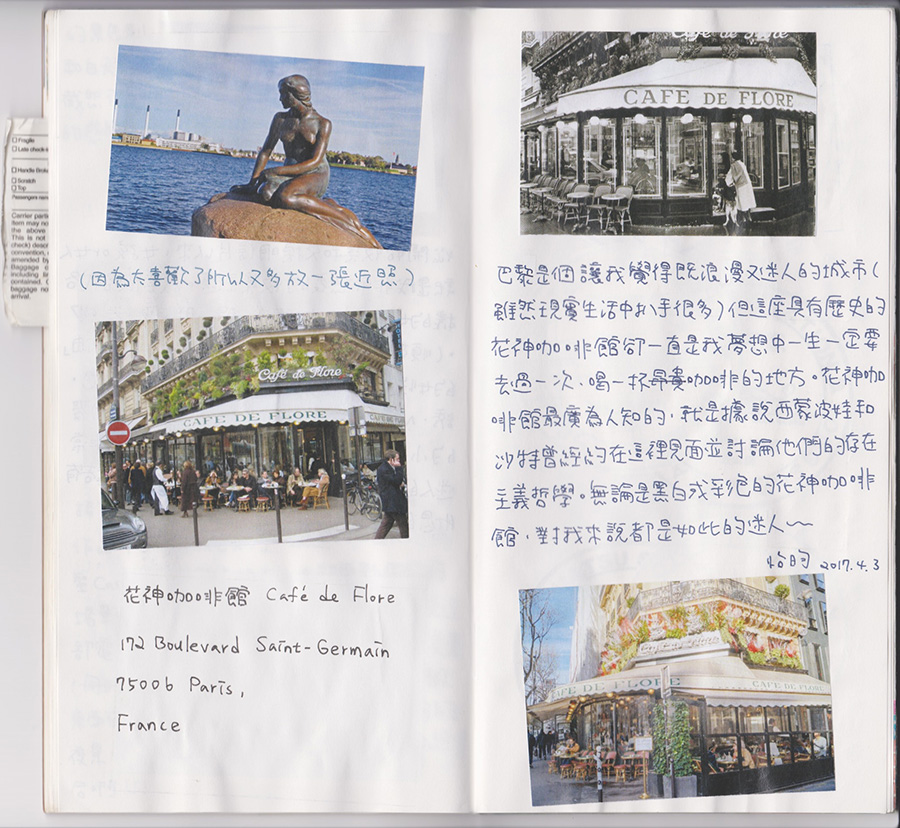 □ Fragile
□ Late check-i
□ Handle Broke
□ Scratch
□ Top
Passengers nam
Carrier parti
item may no
the above
This is not
check) descri
convention,
amended by
Baggage c
including lim
contained. C
baggage no
arrival.
(因為太喜歡了所以又多放一張近照)
Café de Flore
CAFE DE FLORE
CAFE DE FLORE
花神咖啡館 Café de Flore
172 Boulevard Saint-Germain
75006 Paris,
France
Café de Flore
CAFE DE FLORE
巴黎是個讓我覺得既浪漫又迷人的城市(
雖然現實生活中扒手很多)但這座具有歷史的
花神咖啡館卻一直是我夢想中一生一定要
去過一次、喝一杯昂貴咖啡的地方。花神咖
啡館最廣為人知的,就是據說西蒙波娃和
沙特曾經約在這裡見面並討論他們的存在
主義哲學。無論是黑白或彩色的花神咖啡
館,對我來說都是如此的迷人~
怡昀 2017.4.3
CAFE DE FLORE
CAFE DE FLORE